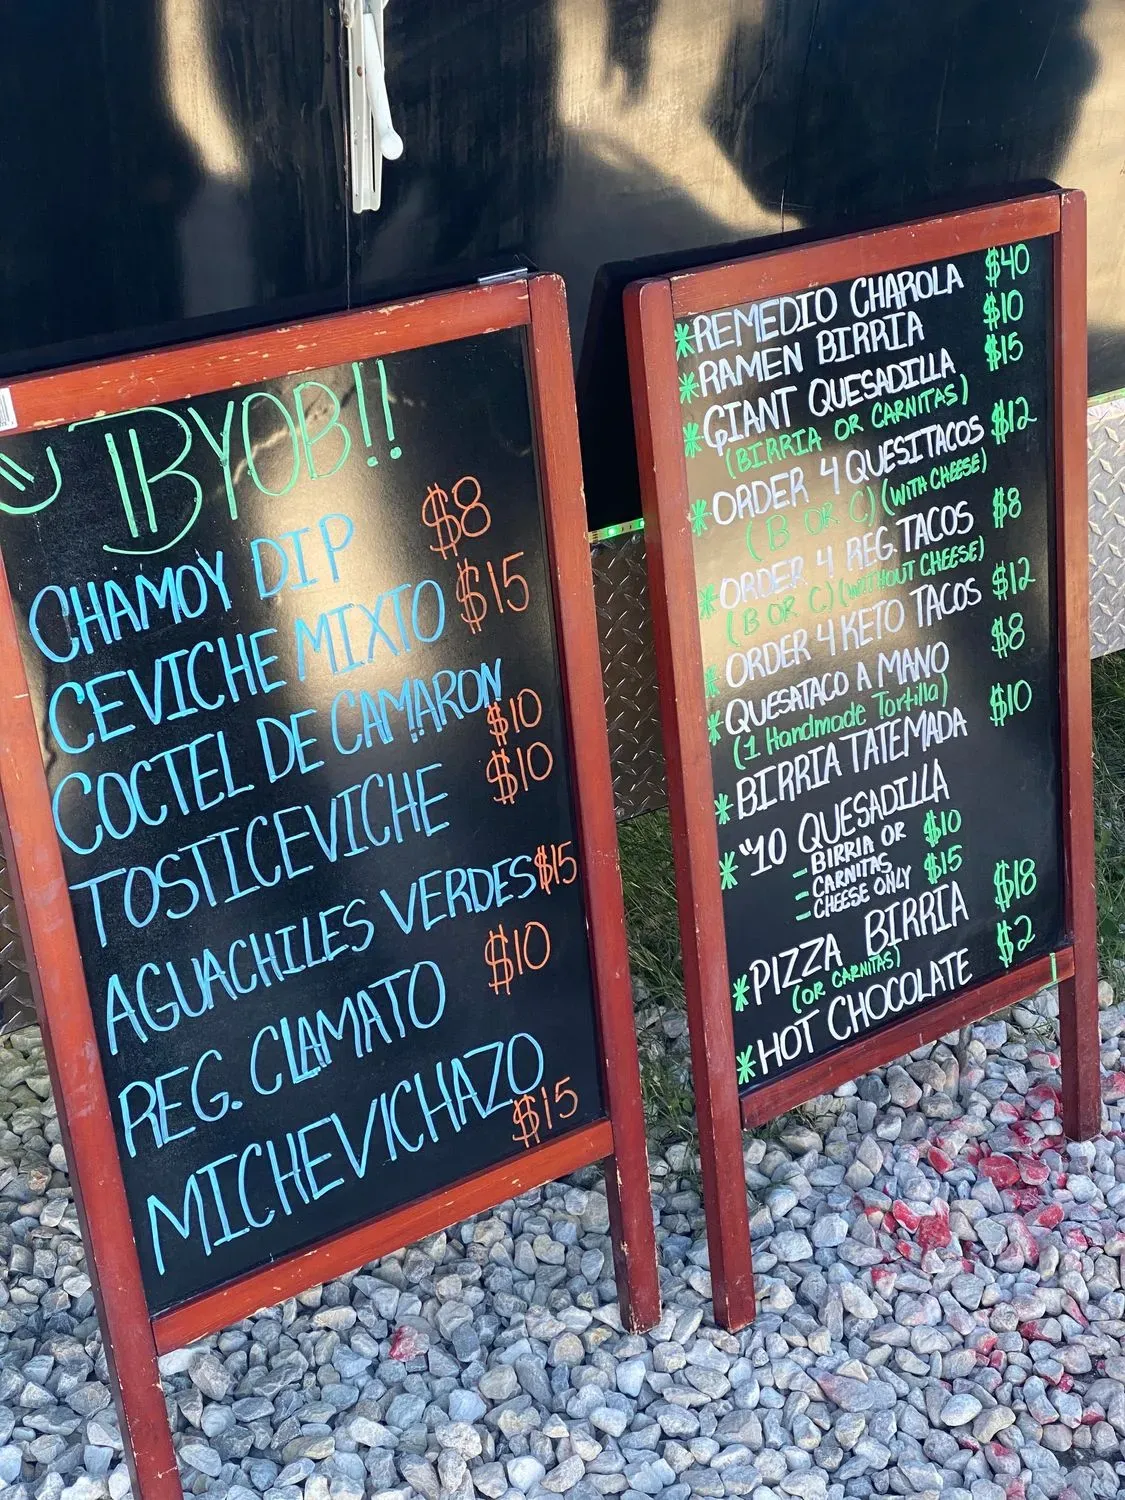 BYOB!!
CHAMOY DIP $8
CEVICHE MIXTO $15
COCTEL DE CAMARON
$10
TOSTICEVICHE $10
AGUACHILES VERDES $15
REG. CLAMATO $10
MICHEVICHAZO
$15
*REMEDIO CHAROLA $40
*RAMEN BIRRIA $10
*GIANT QUESADILLA $15
(BIRRIA OR CARNITAS)
*ORDER 4 QUESITACOS $12
(B OR C) (WITH CHEESE)
*ORDER 4 REG. TACOS $8
(B OR C) (WITHOUT CHEESE)
*ORDER 4 KETO TACOS $12
*QUESATACO A MANO $8
(1 Handmade Tortilla)
*BIRRIA TATEMADA $10
*"10 QUESADILLA
- BIRRIA OR $10
CARNITAS
- CHEESE ONLY $15
*PIZZA BIRRIA $18
(OR CARNITAS)
*HOT CHOCOLATE $2